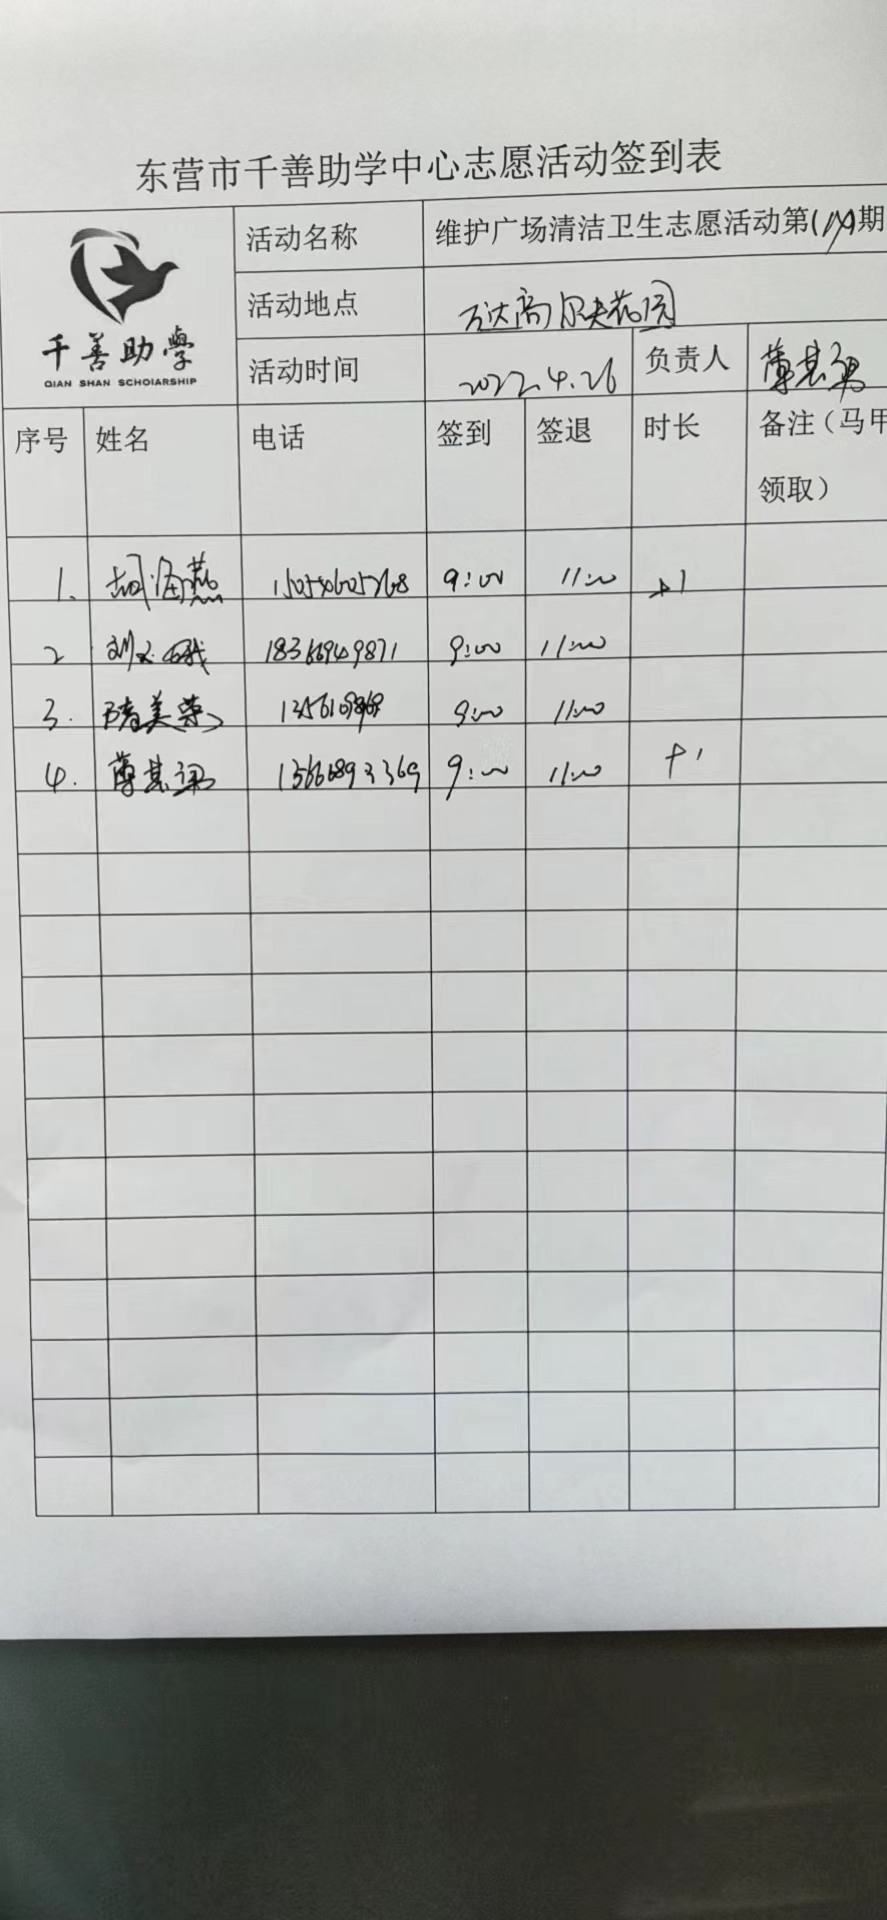 东营市千善助学中心志愿活动签到表
千善助學
QIAN SHAN SCHOIARSHIP
活动名称 维护广场清洁卫生志愿活动第( )期
活动地点 万达高尔夫花园
活动时间 2022.4.26 负责人 薄其
序号 姓名 电话 签到 签退 时长 备注（马甲
领取）
1. 胡海燕 9:00 11:00 +1
2 刘 18366949871 9:00 11:00
3. 隋美荣 9:00 11:00
4. 薄其 13666893369 9:00 11:00 +1